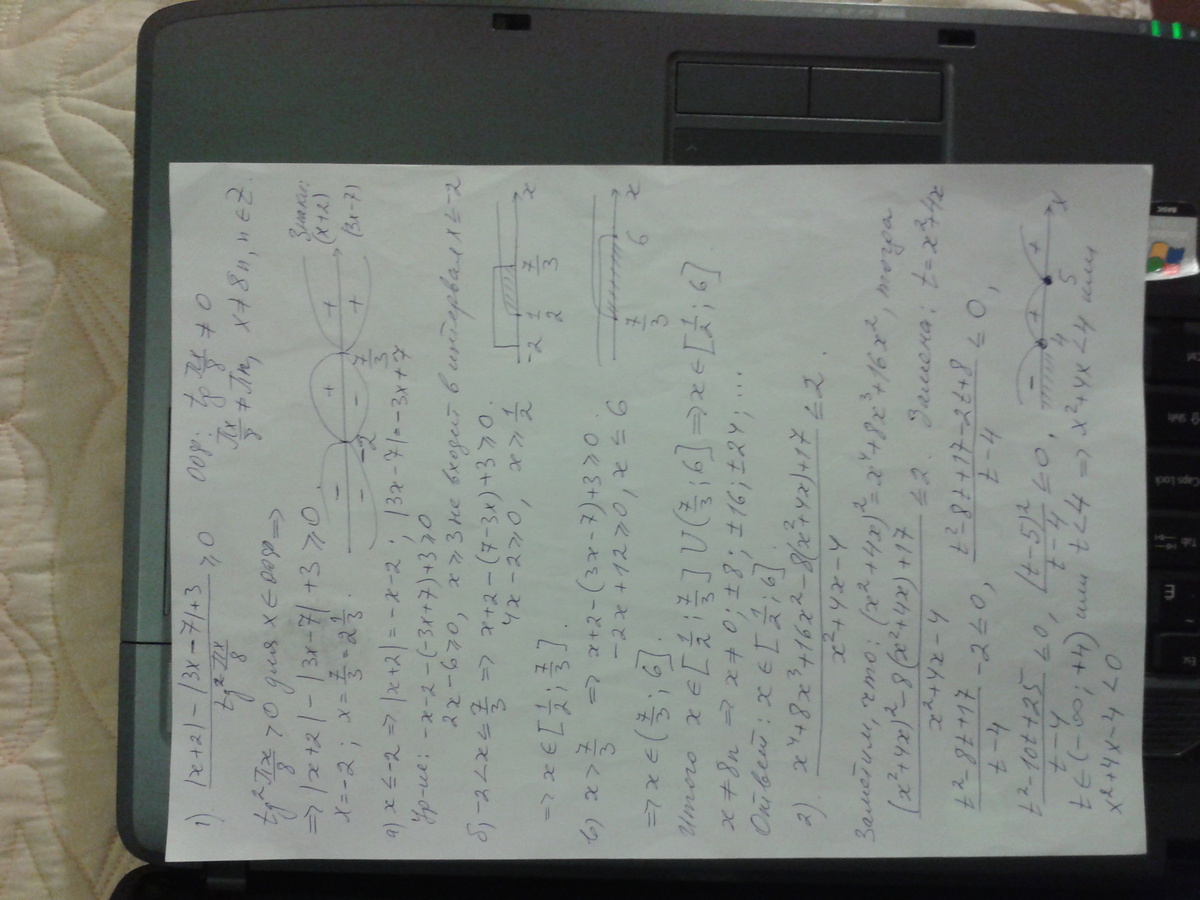 1) (|x+2| - |3x-7| + 3) / (tg² πx/8) ≥ 0   оdр: tg πx/8 ≠ 0
πx/8 ≠ πn, x ≠ 8n, n ∈ Z.
tg² πx/8 > 0 для x ∈ оdр ⇒
⇒ |x+2| - |3x-7| + 3 ≥ 0
x = -2; x = 7/3 = 2 1/3.
Знаки:
- + + (x+2)
- - + (3x-7)
-2 7/3
а) x ≤ -2 ⇒ |x+2| = -x-2; |3x-7| = -3x+7
Ур-ние: -x-2-(-3x+7)+3 ≥ 0
2x-6 ≥ 0, x ≥ 3 не входит в интервал x ≤ -2
б) -2 < x ≤ 7/3 ⇒ x+2-(7-3x)+3 ≥ 0.
4x-2 ≥ 0, x ≥ 1/2
-2 1/2 7/3 x
⇒ x ∈ [1/2; 7/3].
в) x > 7/3 ⇒ x+2-(3x-7)+3 ≥ 0
-2x+12 ≥ 0, x ≤ 6
7/3 6 x
⇒ x ∈ (7/3; 6].
Итого x ∈ [1/2; 7/3] U (7/3; 6] ⇒ x ∈ [1/2; 6]
x ≠ 8n ⇒ x ≠ 0; ±8; ±16; ±24; ...
Ответ: x ∈ [1/2; 6].
2). (x⁴+8x³+16x²-8(x²+4x)+17) / (x²+4x-4) ≤ 2.
Заметим, что: (x²+4x)² = x⁴+8x³+16x², тогда
((x²+4x)²-8(x²+4x)+17) / (x²+4x-4) ≤ 2. Замена: t = x²+4x
(t²-8t+17) / (t-4) - 2 ≤ 0, (t²-8t+17-2t+8) / (t-4) ≤ 0,
(t²-10t+25) / (t-4) ≤ 0, (t-5)² / (t-4) ≤ 0,
- + + 4 5 x
t ∈ (-∞; +4) или t < 4 ⇒ x²+4x < 4 или
x²+4x-4 < 0